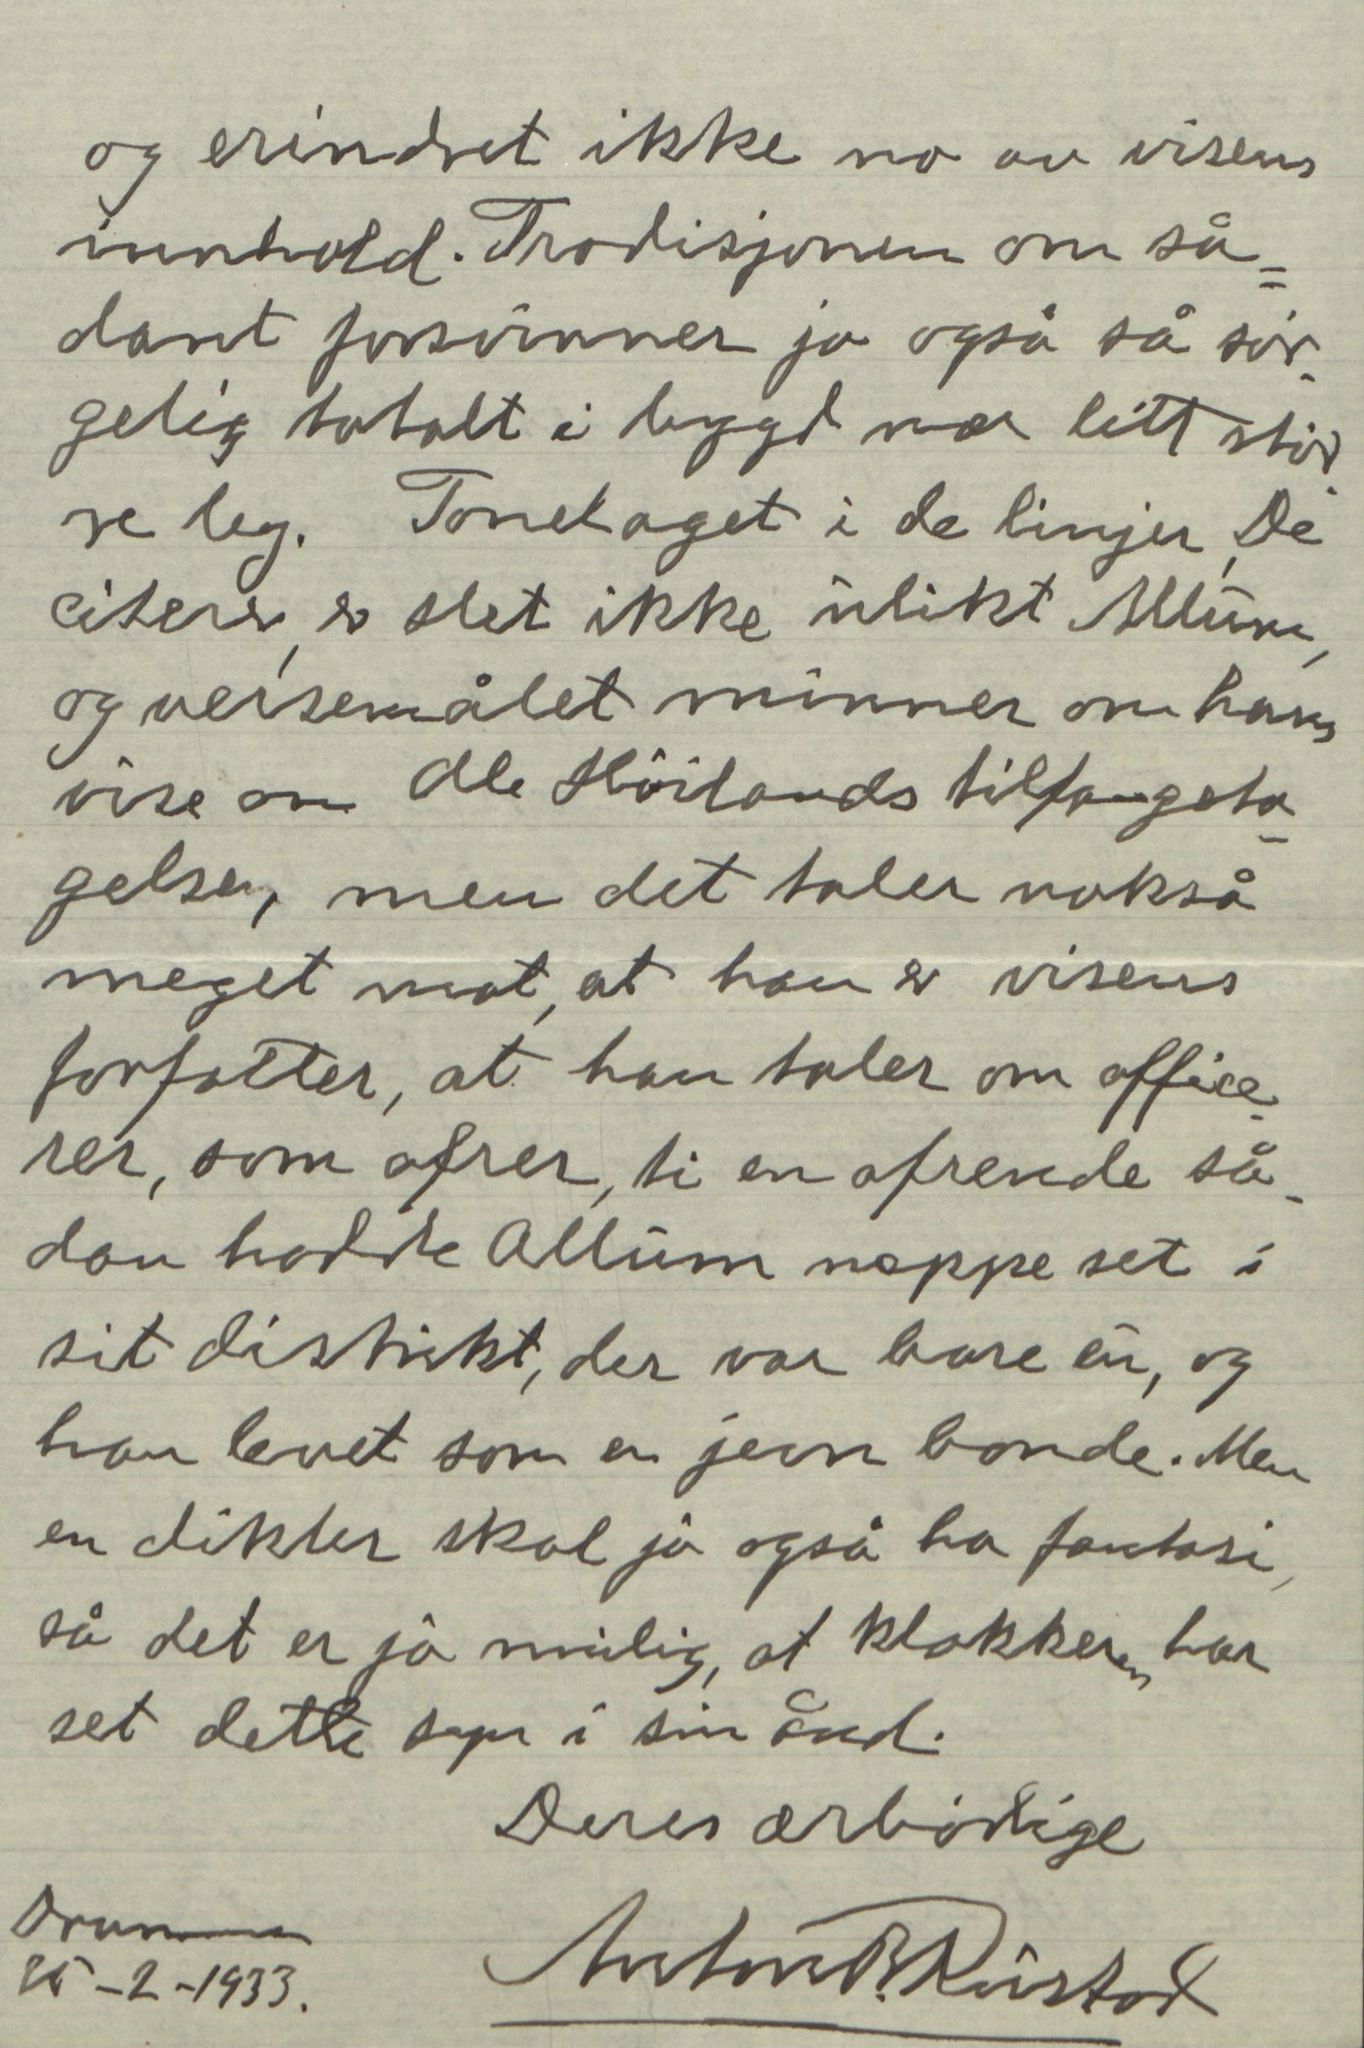 og erindret ikke no av visens
innhold. Tradisjonen om så=
dant forsvinner jo også så sør-
gelig totalt i bygd når litt stør
re leg. Tonelaget i de linjer, De
citerer, er slet ikke ulikt Allum,
og versemålet minner om hans
vise om Ole Höilands tilfangeta-
gelse, men det taler også
meget mot, at han er visens
forfatter, at han taler om office-
rer, som ofrer, ti en ofrende så-
dan hadde Allum neppe set i
sit distrikt, der var bare én, og
han levet som en jevn bonde. Men
en dikter skal jo også ha fantasi,
så det er jo mulig, at klokkeren har
set dette syn i sin ånd.
Deres ærbödige
Drammen
25-2-1933.
Anton B. Rustad